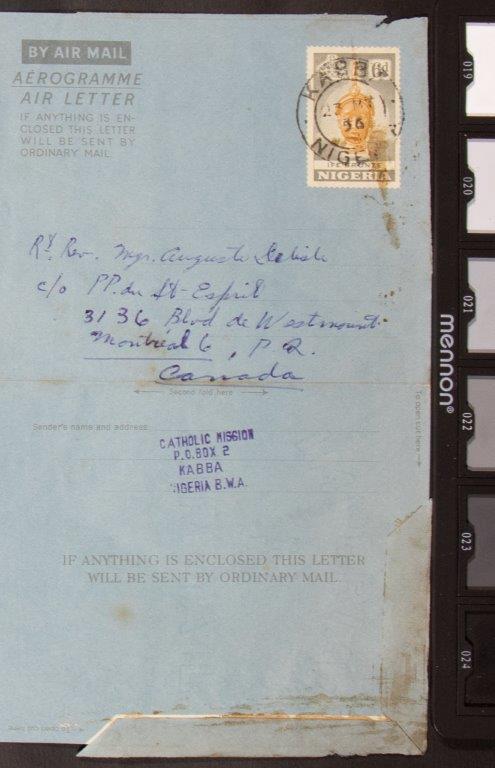 BY AIR MAIL
AÉROGRAMME
AIR LETTER
IF ANYTHING IS EN-
CLOSED THIS LETTER
WILL BE SENT BY
ORDINARY MAIL
KABBA
23
56
NIGE
IFE BRONZE
NIGERIA
Rt. Rev. Mgr. Auguste Delisle
c/o PP. du St-Esprit
3136 Blvd de Westmount
Montreal 6, P.Q.
Canada
Second fold here
To open cut here
Sender's name and address
CATHOLIC MISSION
P.O.BOX 2
KABBA
NIGERIA B.W.A.
IF ANYTHING IS ENCLOSED THIS LETTER
WILL BE SENT BY ORDINARY MAIL.
019
020
021
mennon®
022
023
024